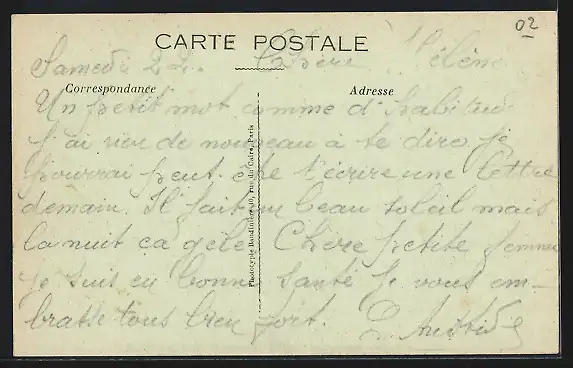 02
CARTE POSTALE
Samedi 22. Chère Hélène
Correspondance
Adresse
Un petit mot comme d'habitud
J'ai rien de nouveau à te dire je
pourrai peut-être t'écrire une lettre
demain. Il fait un beau soleil mais
la nuit ça gèle. Chère petite femme
je suis en bonne santé Je vous em-
brasse tous bien fort.
Phototypie Baudinière, rue du Caire, Paris